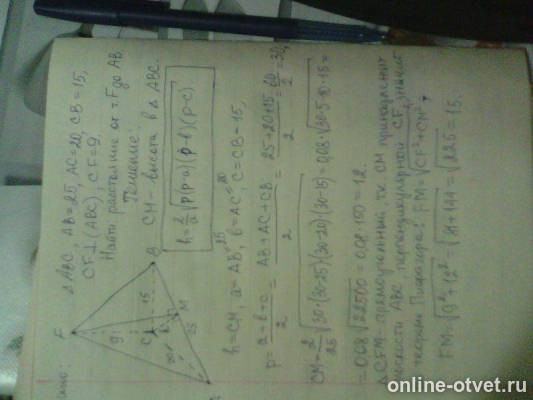 Дано:
Δ ABC, AB=25, AC=20, CB=15,
CF⊥(ABC), CF=9.
Найти расстояние от т.F до AB
Решение:
CM - высота в Δ ABC.
h=2/a √p(p-a)(p-b)(p-c).
h=CM, a=AB=25, b=AC=20, c=CB=15,
p=a-b-c/2 = AB+AC+CB/2 = 25+20+15/2 = 60/2=30,
CM=2/25 √30·(30-25)(30-20)(30-15) = 0,08·√30·5·10·15 =
=0,08√22500 = 0,08·150 = 12.
Δ CFM - прямоугольный, тк. CM принадлежит
плоскости ABC перпендикулярной CF, значит
теорема Пифагора: FM=√CF²+CM²,
FM=√9²+12² = √81+144 = √225 = 15.
F
9
C
B
15
M
25
20
A
online-otvet.ru